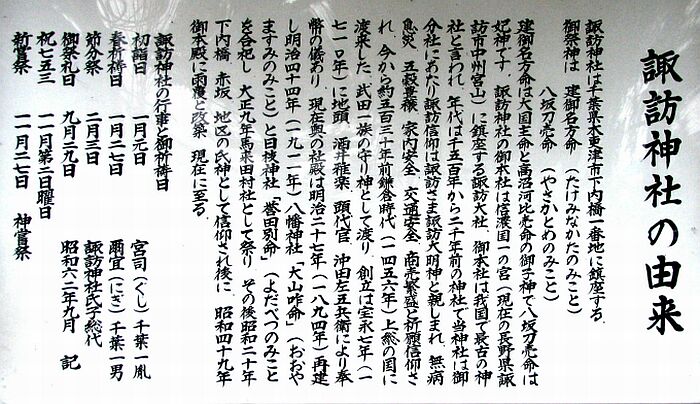 諏訪神社の由来
諏訪神社は千葉県木更津市下内橋一番地に鎮座する。
御祭神は 建御名方命 (たけみなかたのみこと)
八坂刀売命 (やさかとめのみこと)
建御名方命は大国主命と高沼河比売命の御子神で八坂刀売命は
妃神です。諏訪神社の御本社は信濃国一の宮(現在の長野県諏
訪市中州宮山)に鎮座する諏訪大社 御本社は我国で最古の神
社と言われ 年代は千五百年から二千年前の神社で当神社は御
分社にあたり諏訪信仰は諏訪さま諏訪大明神と親しまれ 無病
息災 五穀豊穣 家内安全 交通安全 商売繁盛と祈願信仰さ
れ、今から約五百三十年前鎌倉時代(一四五六年)上総の国に
渡来した 武田一族の守り神として渡り 創立は宝永七年(一
七一〇年)に地頭 酒井雅楽 頭代官 沖田左五兵衛により奉
幣の儀あり 現在奥の社殿は明治二十七年(一八九四年)再建
し明治四十四年(一九一一年)八幡神社「大山咋命」(おおや
ますみのみこと)と日枝神社「誉田別命」(よだべつのみこと
を合祀し 大正九年馬来田村社として祭り その後昭和二十年
下内橋 赤坂 地区の氏神として信仰され後に 昭和四十九年
御本殿に雨覆と改築 現在に至る
諏訪神社の行事と御祈祷日
初詣日 一月元日
春祈祷日 一月二七日
節分祭 二月三日
御祭礼日 九月二九日
祝七五三 一一月第二日曜日
新嘗祭 一一月二七日 神嘗祭
宮司(ぐし)千葉一胤
禰宜(にぎ)千葉一男
諏訪神社氏子総代
昭和六二年九月 記